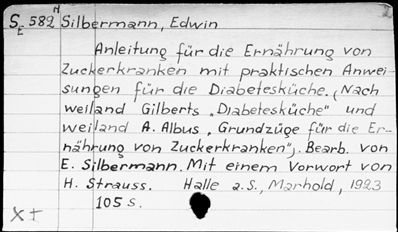 S_E 582 H Silbermann, Edwin
Anleitung für die Ernährung von
Zuckerkranken mit praktischen Anwei-
sungen für die Diabetesküche. (Nach
weiland Gilberts „Diabetesküche" und
weiland A. Albus „Grundzüge für die Er-
nährung von Zuckerkranken"). Bearb. von
E. Silbermann. Mit einem Vorwort von
H. Strauss. Halle a.S., Marhold, 1923
105 S.
X +